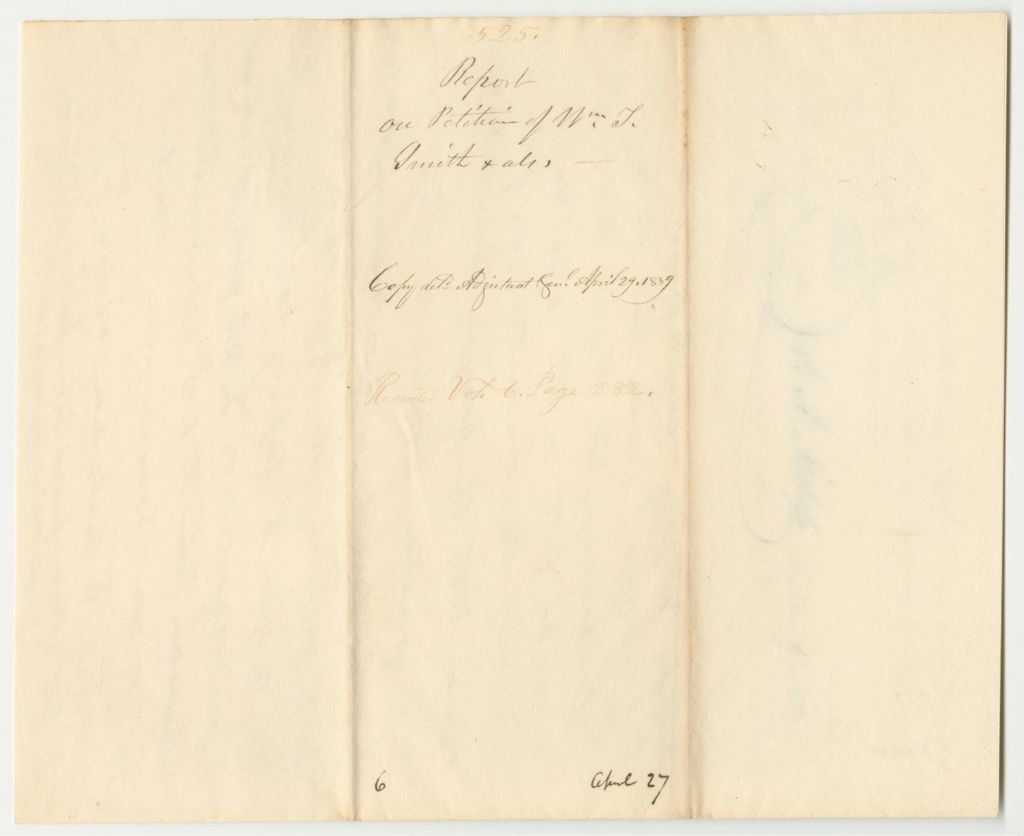 525.
Report
on Petition of Wm. T.
Smith & als.
Copy deld Adjutant Genl. April 29. 1839
Recorded Vol. 6. Page 282.
6 April 27